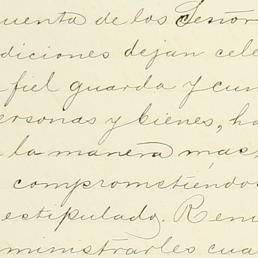 uenta de los Señor
diciones dejan cele
fiel guarda y cum
ersonas y bienes, ha
la manera mas
comprometiéndos
estipulado. Renu
ministrarles cua